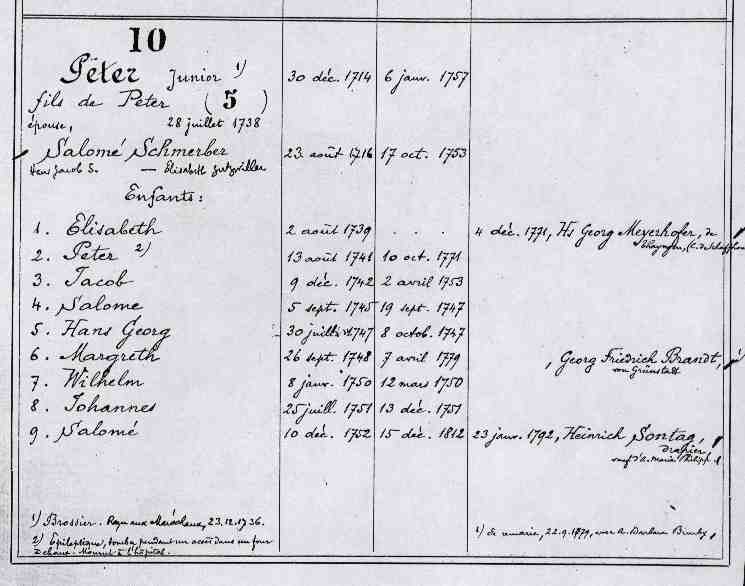 10
Péter Junior 1) 30 déc. 1714 6 janv. 1757
fils de Peter (5)
épouse, 28 juillet 1738
Salomé Schmerber 23 août 1716 17 oct. 1753
Hans Jacob S. — Elisabeth
Enfants:
1. Elisabeth 2 août 1739 . . . 4 déc. 1771, Hs Georg Meyerhofer, de
2. Peter 2) 13 août 1741 10 oct. 1771
3. Jacob 9 déc. 1742 2 avril 1753
4. Salome 5 sept. 1745 19 sept. 1747
5. Hans Georg 30 juillet 1747 8 octob. 1747
6. Margreth 26 sept. 1748 7 avril 1779 , Georg Friedrich Brandt, 1)
von Grünstadt
7. Wilhelm 8 janv. 1750 12 mars 1750
8. Johannes 25 juill. 1751 13 déc. 1751
9. Salomé 10 déc. 1752 15 déc. 1812 23 janv. 1792, Heinrich Sontag,
Drapier
veuf d'A. Marie Philipp
1) Brossier. Reçu aux Maréchaux, 23.12.1736.
2) Epileptique, tomba pendant un accès dans un four
à chaux. Mourut à l'hôpital.
1) Se remarie, 22.9.1779, avec A. Barbara